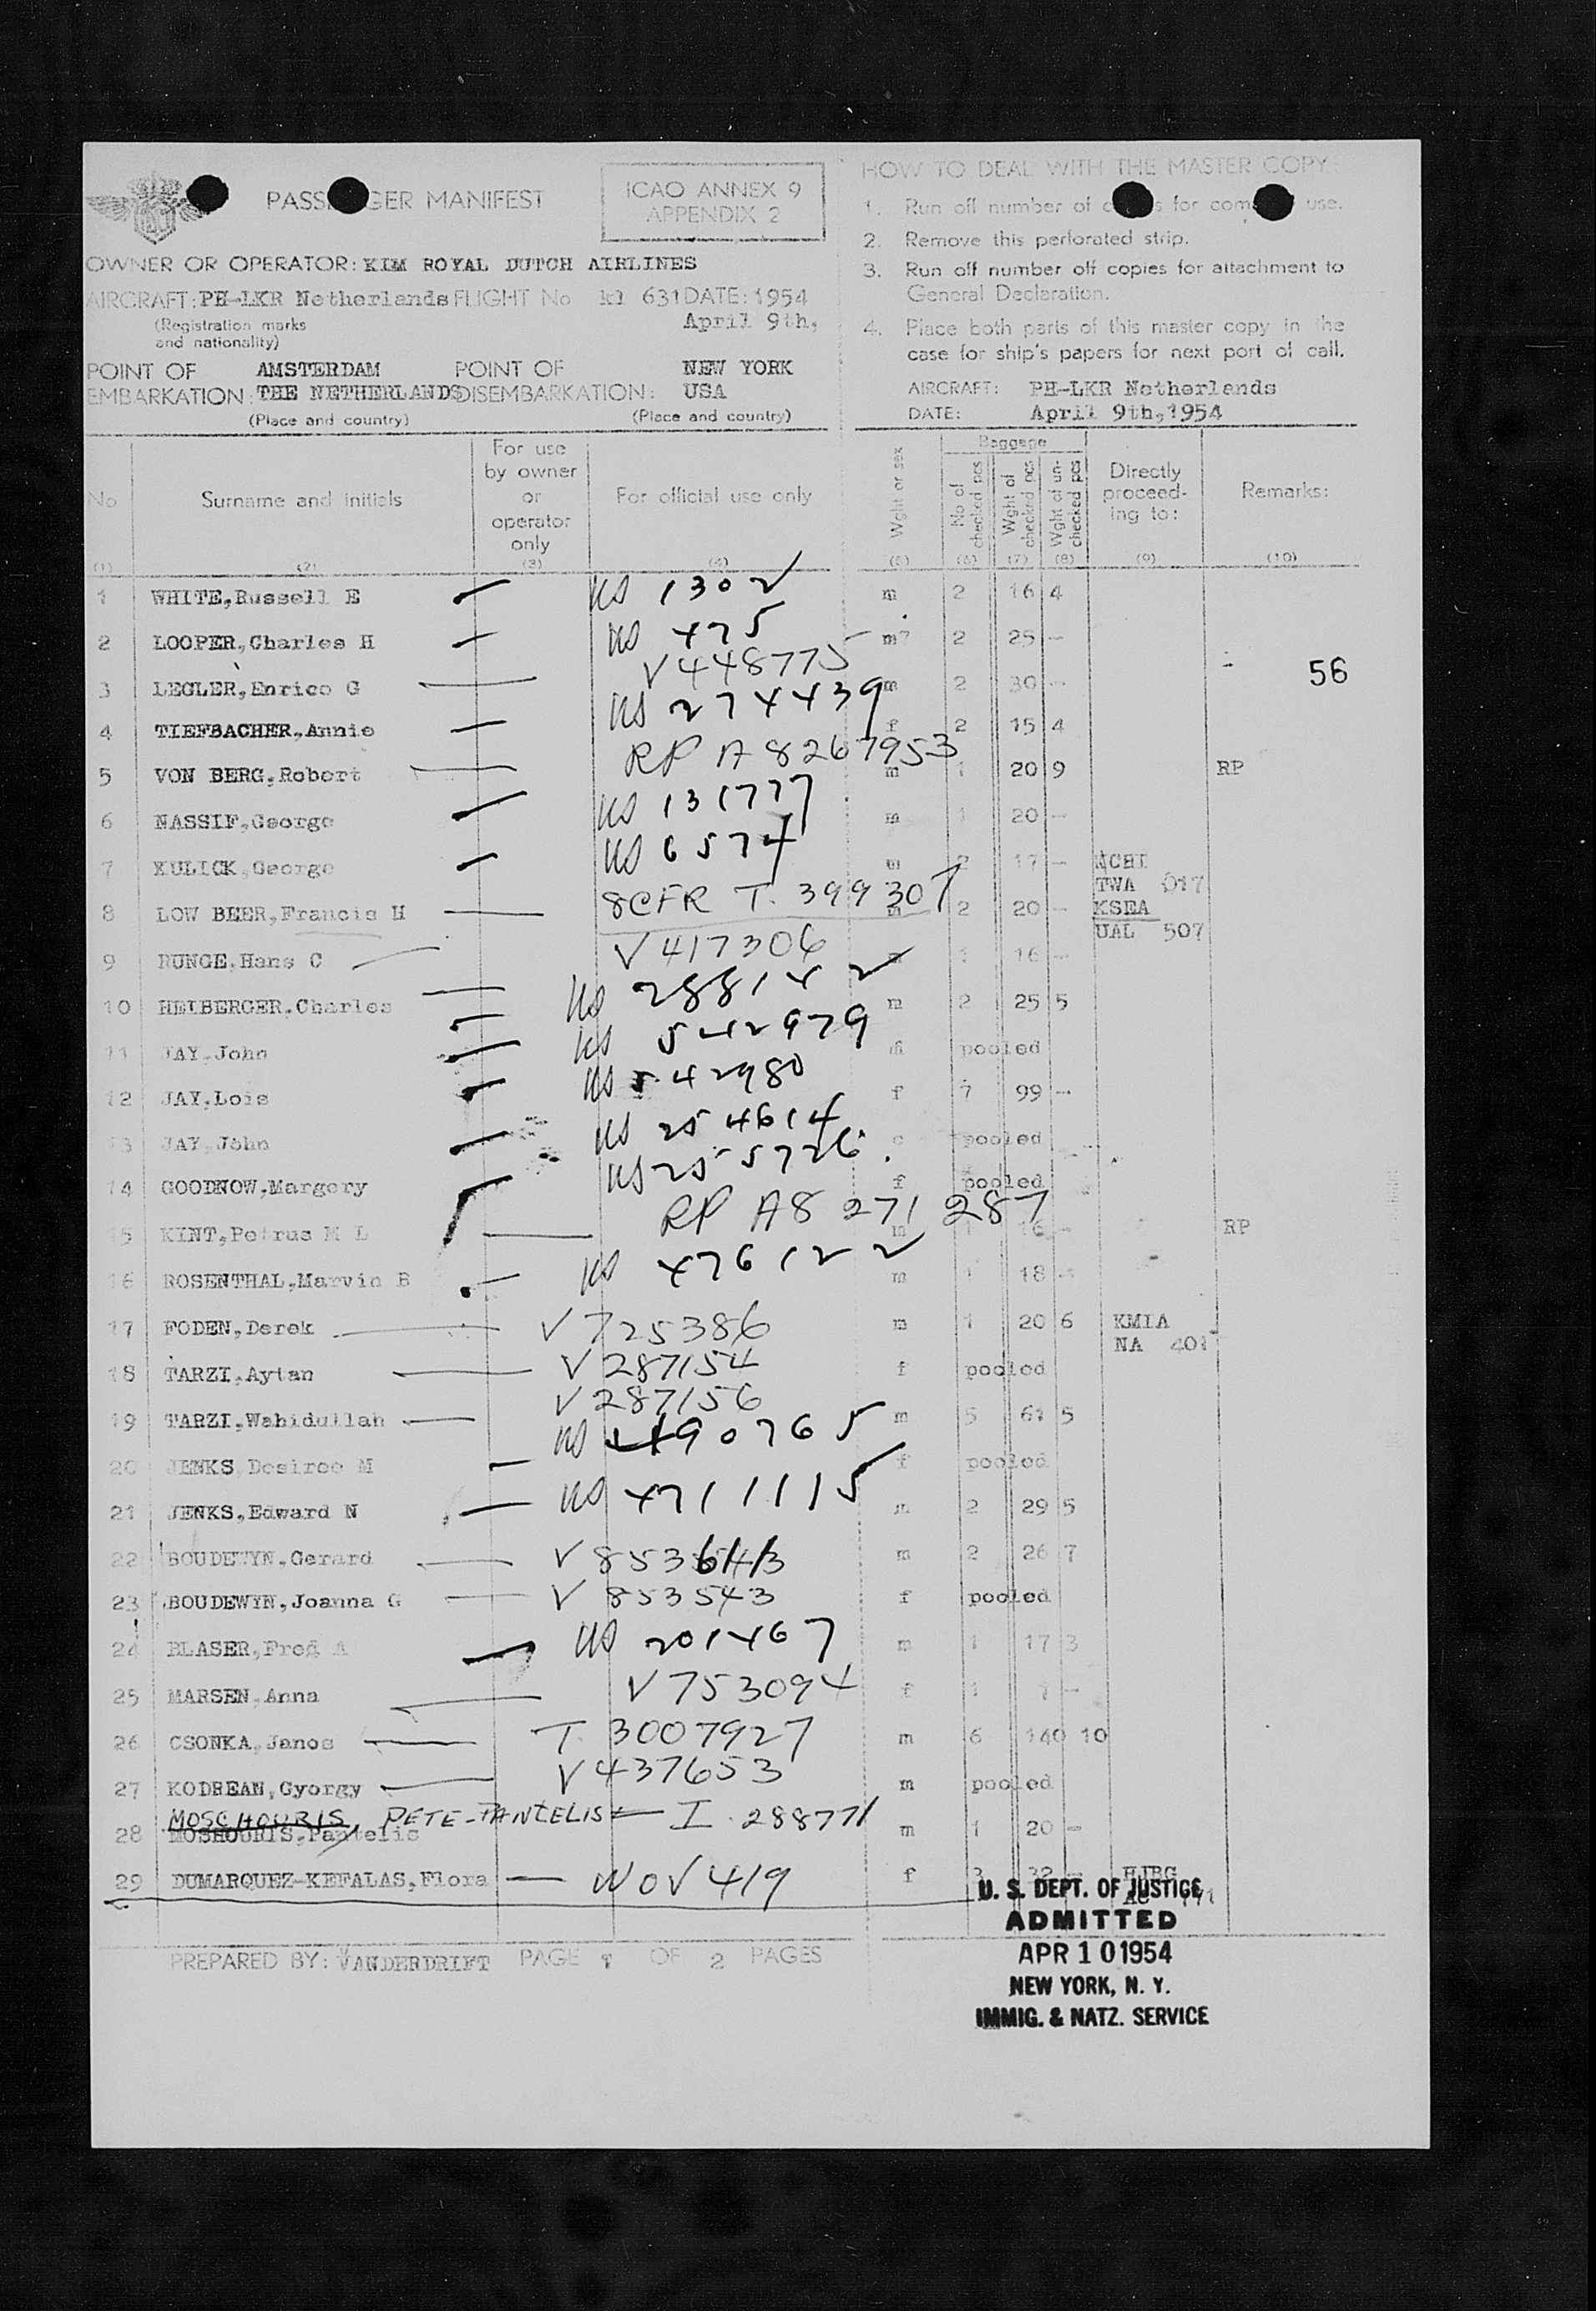 PASSENGER MANIFEST
ICAO ANNEX 9
APPENDIX 2
OWNER OR OPERATOR: KLM ROYAL DUTCH AIRLINES
AIRCRAFT: PH-LKR Netherlands FLIGHT No kl 631 DATE: 1954
April 9th,
(Registration marks
and nationality)
POINT OF AMSTERDAM POINT OF NEW YORK
EMBARKATION: THE NETHERLANDS DISEMBARKATION: USA
(Place and country) (Place and country)
HOW TO DEAL WITH THE MASTER COPY
1. Run off number of for use.
2. Remove this perforated strip.
3. Run off number off copies for attachment to
General Declaration.
4. Place both parts of this master copy in the
case for ship's papers for next port of call.
AIRCRAFT: PH-LKR Netherlands
DATE: April 9th, 1954
No Surname and initials For use by owner or operator only For official use only Wght or sex Baggage No of checked pcs Wght of checked pcs Wght of un-checked pcs Directly proceed-ing to: Remarks:
(1) (2) (3) (4) (5) (6) (7) (8) (9) (10)
1 WHITE, Russell E US 1302 m 2 16 4
2 LOOPER, Charles H US 475 m 2 25 -
56
3 LEGLER, Enrico G V448775 m 2 30 -
4 TIEFBACHER, Annie US 274439 f 2 15 4
5 VON BERG, Robert RP A8267953 m 1 20 9 RP
6 NASSIF, George US 131777 m 1 20 -
7 KULICK, George US 6574 m 2 17 - KCHI
TWA 017
8 LOW BEER, Francis H 8CFR T. 399307 m 2 20 - KSEA
UAL 507
9 RUNGE, Hans C V417306 m 1 16 -
10 HEIBERGER, Charles US 288142 m 2 25 5
11 JAY, John US 542979 m pooled
12 JAY, Lois US 542980 f 7 99 -
13 JAY, John US 254614 c pooled
14 GOODNOW, Margery US 255726 f pooled
15 KINT, Petrus M L RP A8 271 287 m 1 16 - RP
16 ROSENTHAL, Marvin B US 476122 m 1 18 -
17 FODEN, Derek V 725386 m 1 20 6 KMIA
NA 401
18 TARZI, Aytan V 287154 f pooled
19 TARZI, Wahidullah V 287156 m 5 61 5
20 JENKS, Desiree M US 490765 f pooled
21 JENKS, Edward N US 471115 m 2 29 5
22 BOUDEWYN, Gerard V m 2 26 7
23 BOUDEWYN, Joanna G V 853543 f pooled
24 BLASER, Fred A US 201467 m 1 17 3
25 MARSEN, Anna V 753094 f 1 7 -
26 CSONKA, Janos T. 3007927 m 6 140 10
27 KODREAN, Gyorgy V437653 m pooled
MOSCHOURIS, PETE-PANTELIS I. 288771
28 MOSHOURIS, Pantelis m 1 20 -
29 DUMARQUEZ-KEFALAS, Flora NOV 419 f 3 32 - HJBG
U. S. DEPT. OF JUSTICE
ADMITTED
APR 10 1954
NEW YORK, N. Y.
IMMIG. & NATZ. SERVICE
PREPARED BY: VANDERDRIFT PAGE 1 OF 2 PAGES